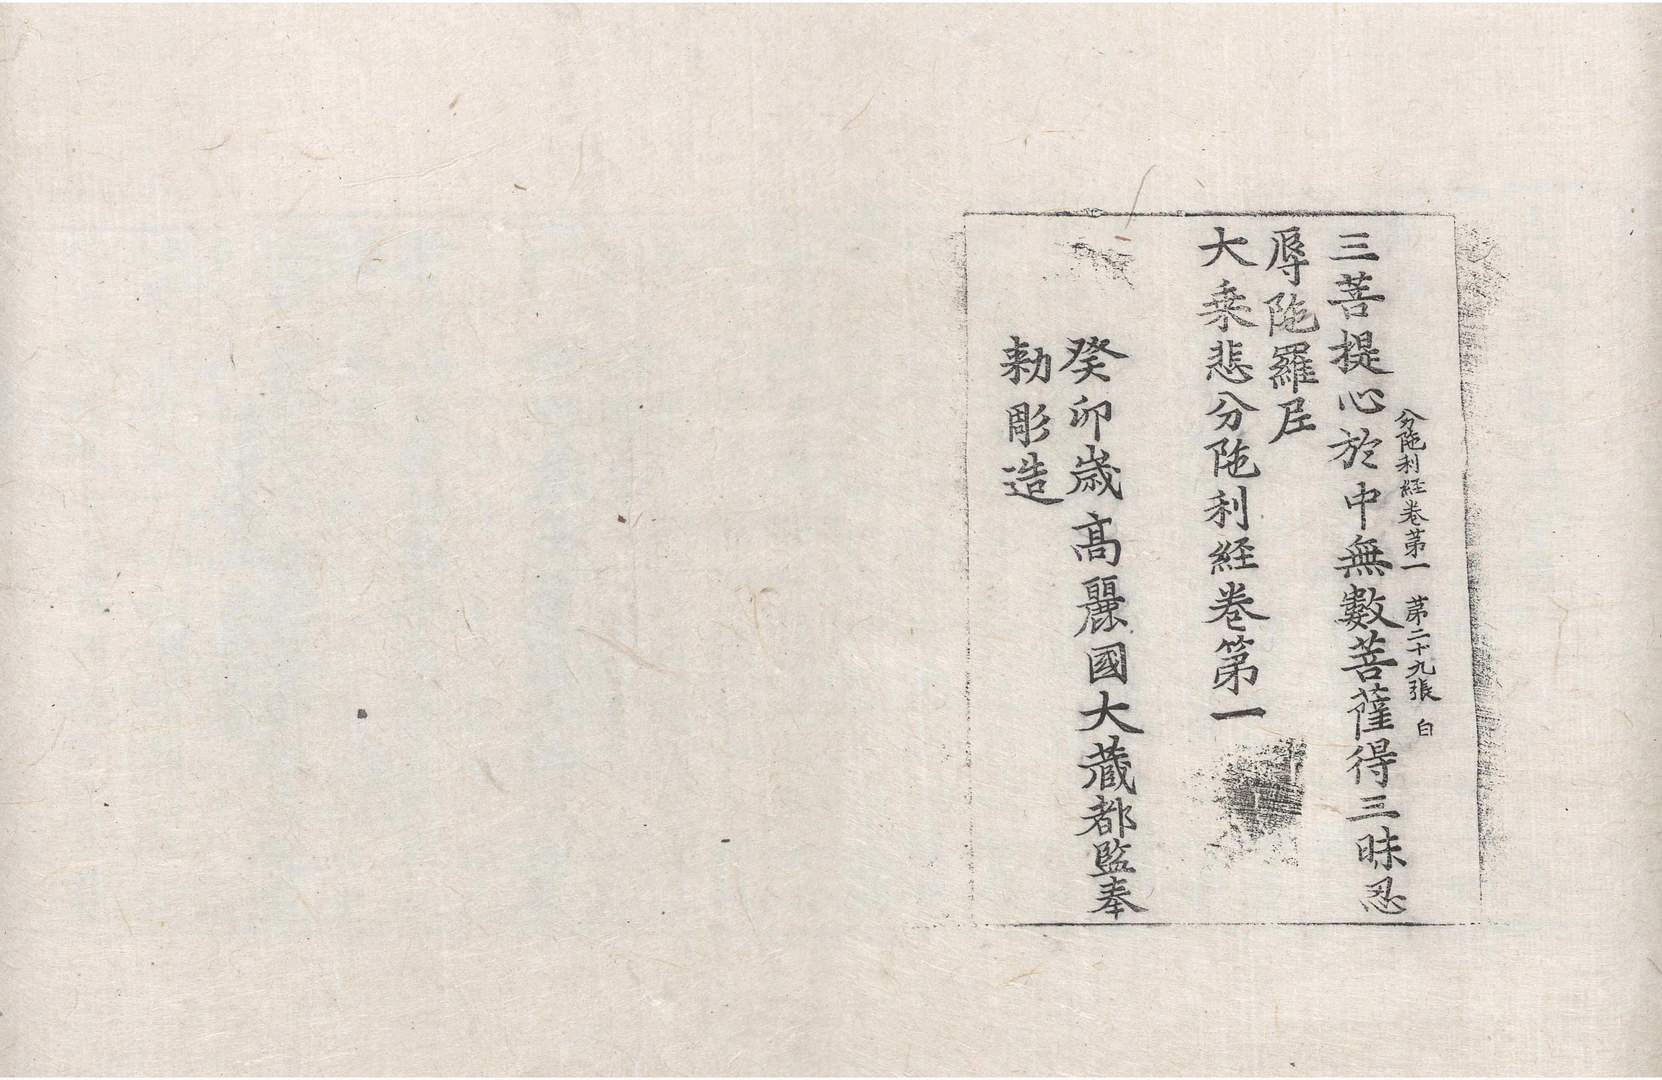 分陁利経卷第一 第二十九張 白
三菩提心於中無數菩薩得三昧忍
辱陁羅尼
大乗悲分陁利経卷第一
癸卯歳高麗國大藏都監奉
勑彫造